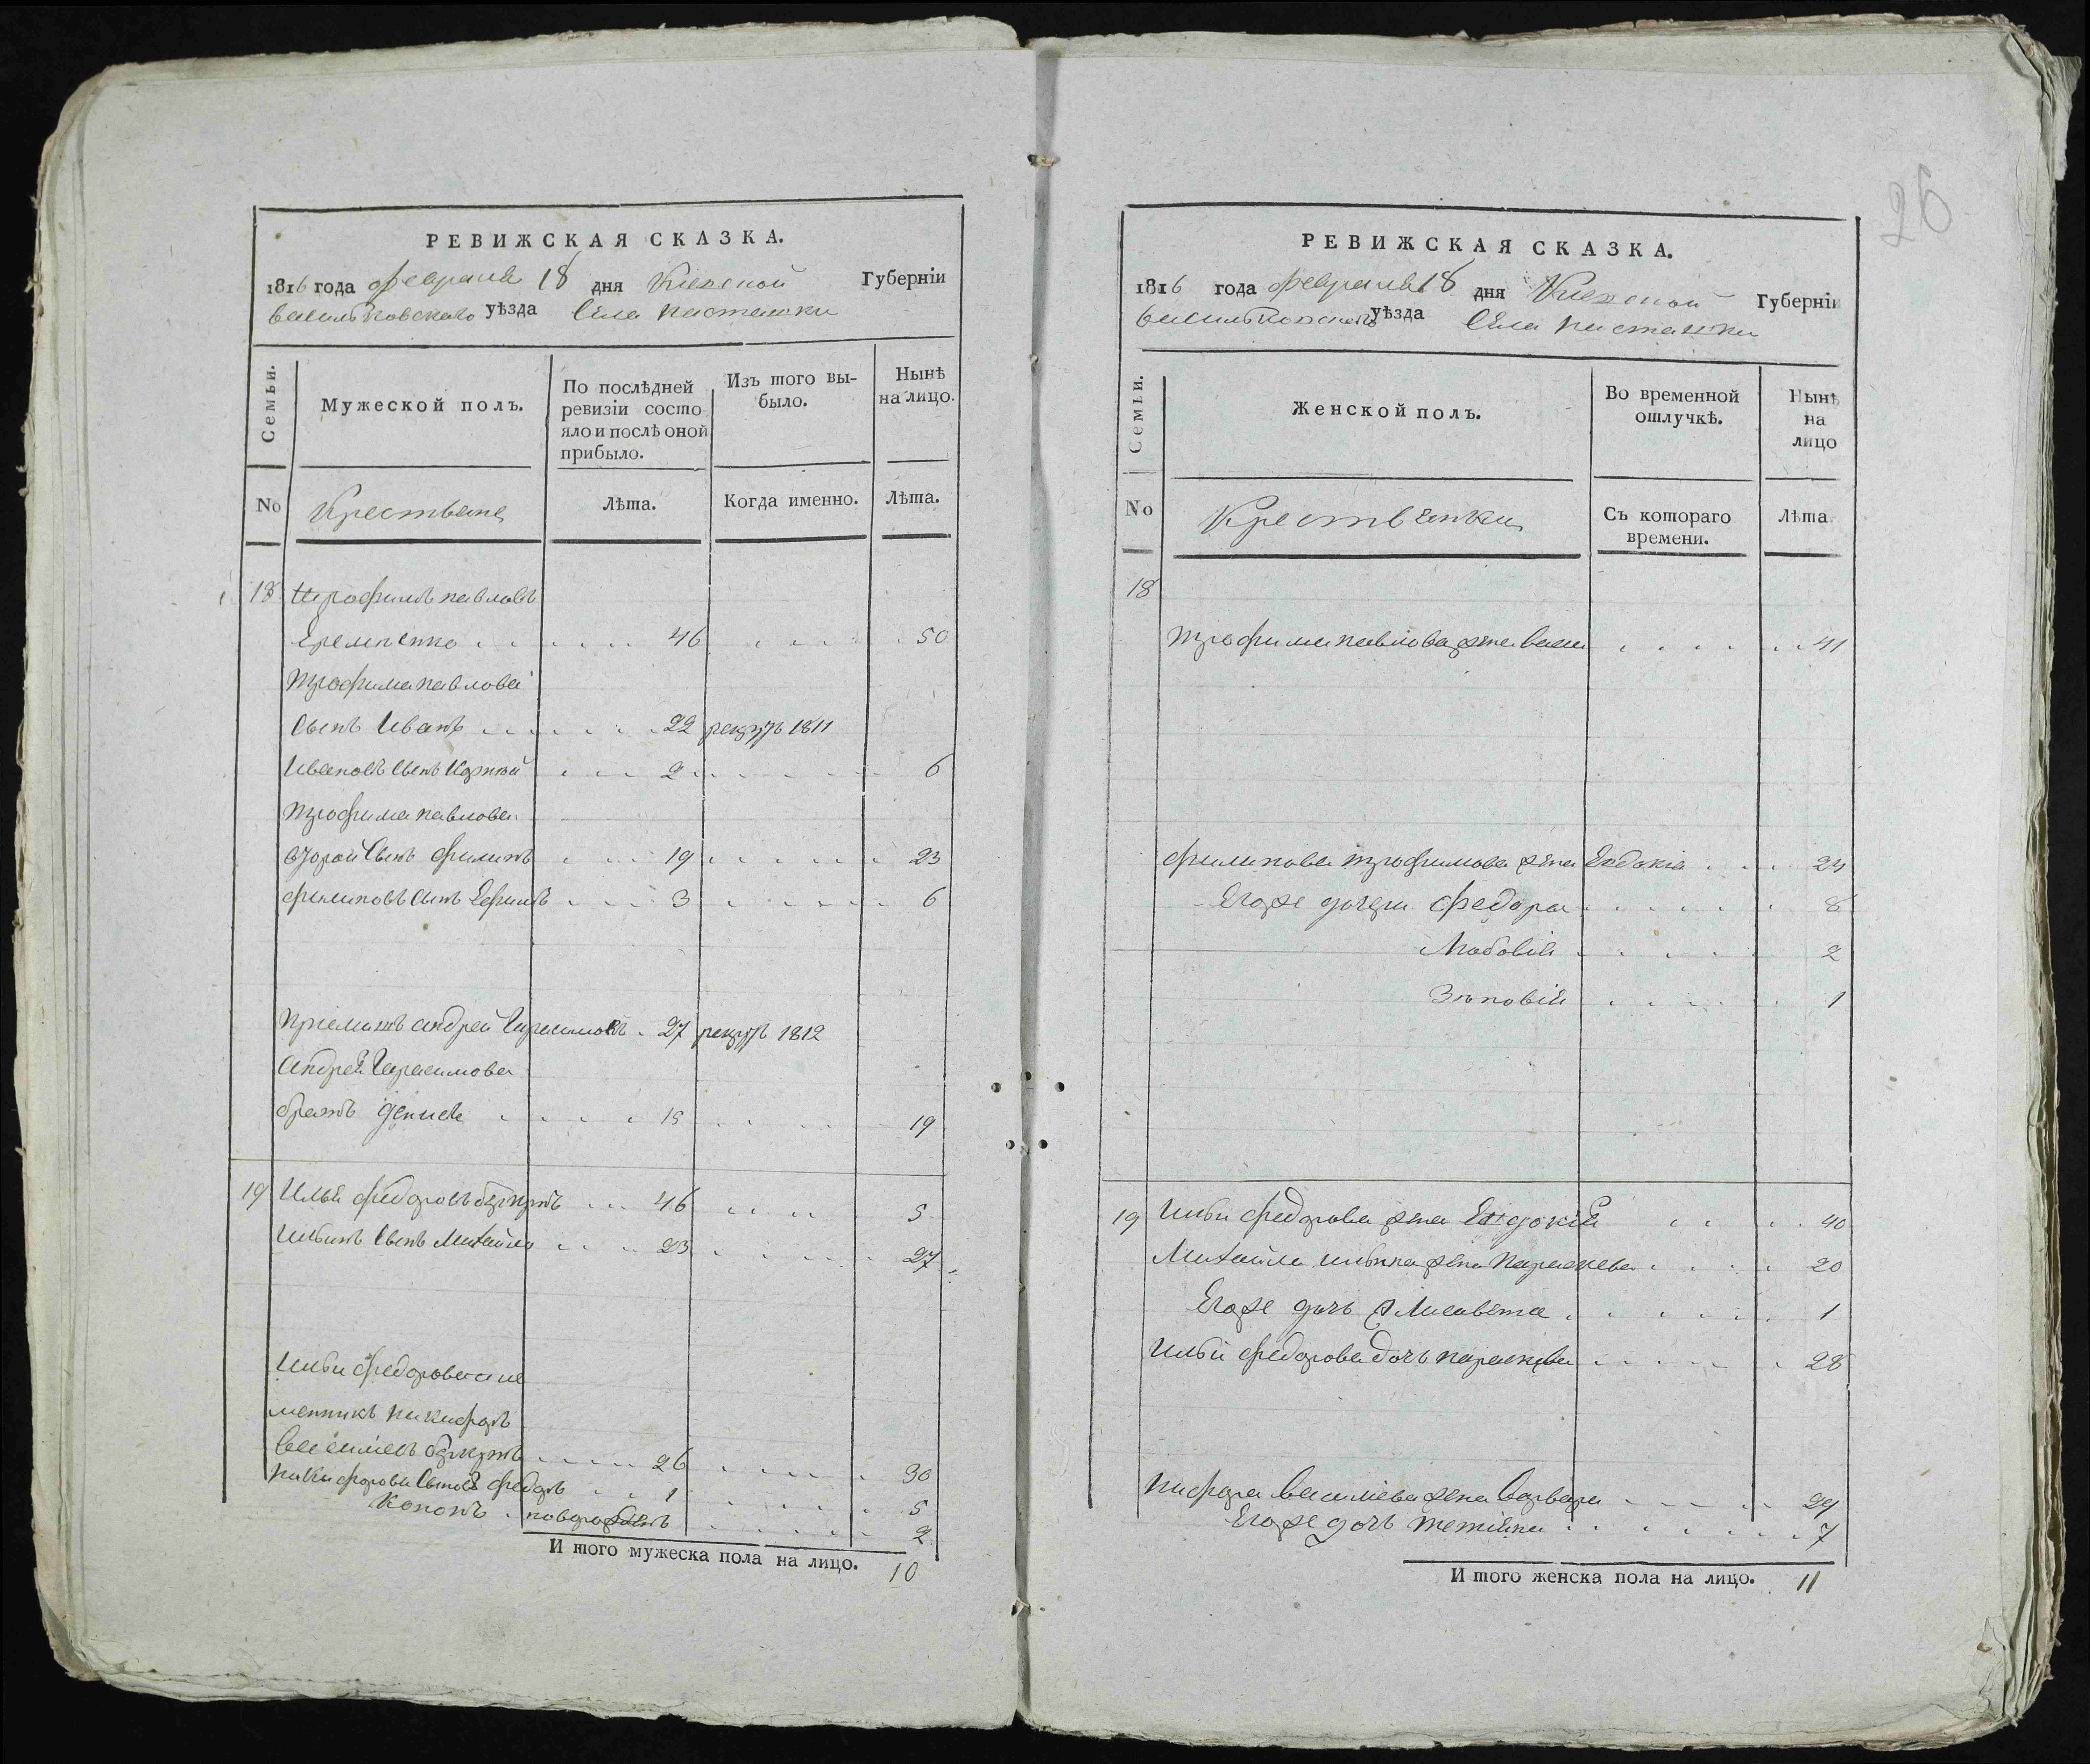 РЕВИЖСКАЯ СКАЗКА.
1816 года февраля 18 дня Киевской Губерніи
васильковского уѣзда Села пасташки
Семьи. Мужеской полъ. По послѣдней ревизіи состояло и послѣ оной прибыло. Изъ того выбыло. Нынѣ на лицо.
No Крестьяне Лѣта. Когда именно. Лѣта.
18 трофимъ павловъ
Еременко 46 50
трофима павлова
сынъ Иванъ 22 рекрутъ 1811
Ивановъ сынъ 2 6
трофима павлова
второй сынъ филипъ 19 23
филиповъ сынъ Ефимъ 3 6
приемышъ андрей Герасимовъ 27 рекрутъ 1812
андрея Герасимова
братъ денисъ 15 19
19 Илья федоровъ 46 5
Ильинъ сынъ Михайло 23 27
Ильи федорова пле
менникъ никифоръ
васильевъ 26 30
никифорови сыновя федоръ 1 5
Кононъ новорожденъ 2
И того мужеска пола на лицо. 10
26
РЕВИЖСКАЯ СКАЗКА.
1816 года февраля 18 дня Киевской Губерніи
васильковского уѣзда Села пасташки
Семьи. Женской полъ. Во временной отлучкѣ. Нынѣ на лицо
No Крестьянки Съ котораго времени. Лѣта.
18
трофима павлова жена 41
филипова трофимова жена Евдокія 24
Егоже дочери федора 8
Любовія 2
Зѣновія 1
19 Ильи федорова жена Евдокія 40
Михайла ильина жена параскева 20
Егоже дочь Елисавета 1
Ильи федорова дочь параскева 28
никфора василіева жена варвара 29
Егоже дочь татіяна 7
И того женска пола на лицо. 11